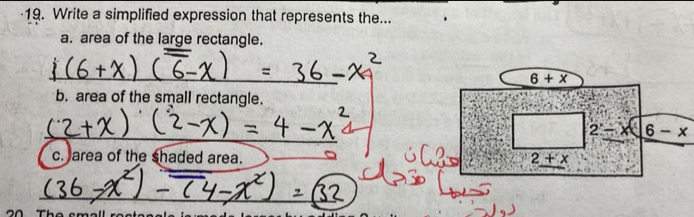 19. Write a simplified expression that represents the...
a. area of the large rectangle.
(6+x) (6-x) = 36-x²
b. area of the small rectangle.
(2+x) (2-x) = 4-x²
c. area of the shaded area.
(36-x²) - (4-x²) = 32
6 + x
2 - x
6 - x
2 + x
عشان
تجيبها